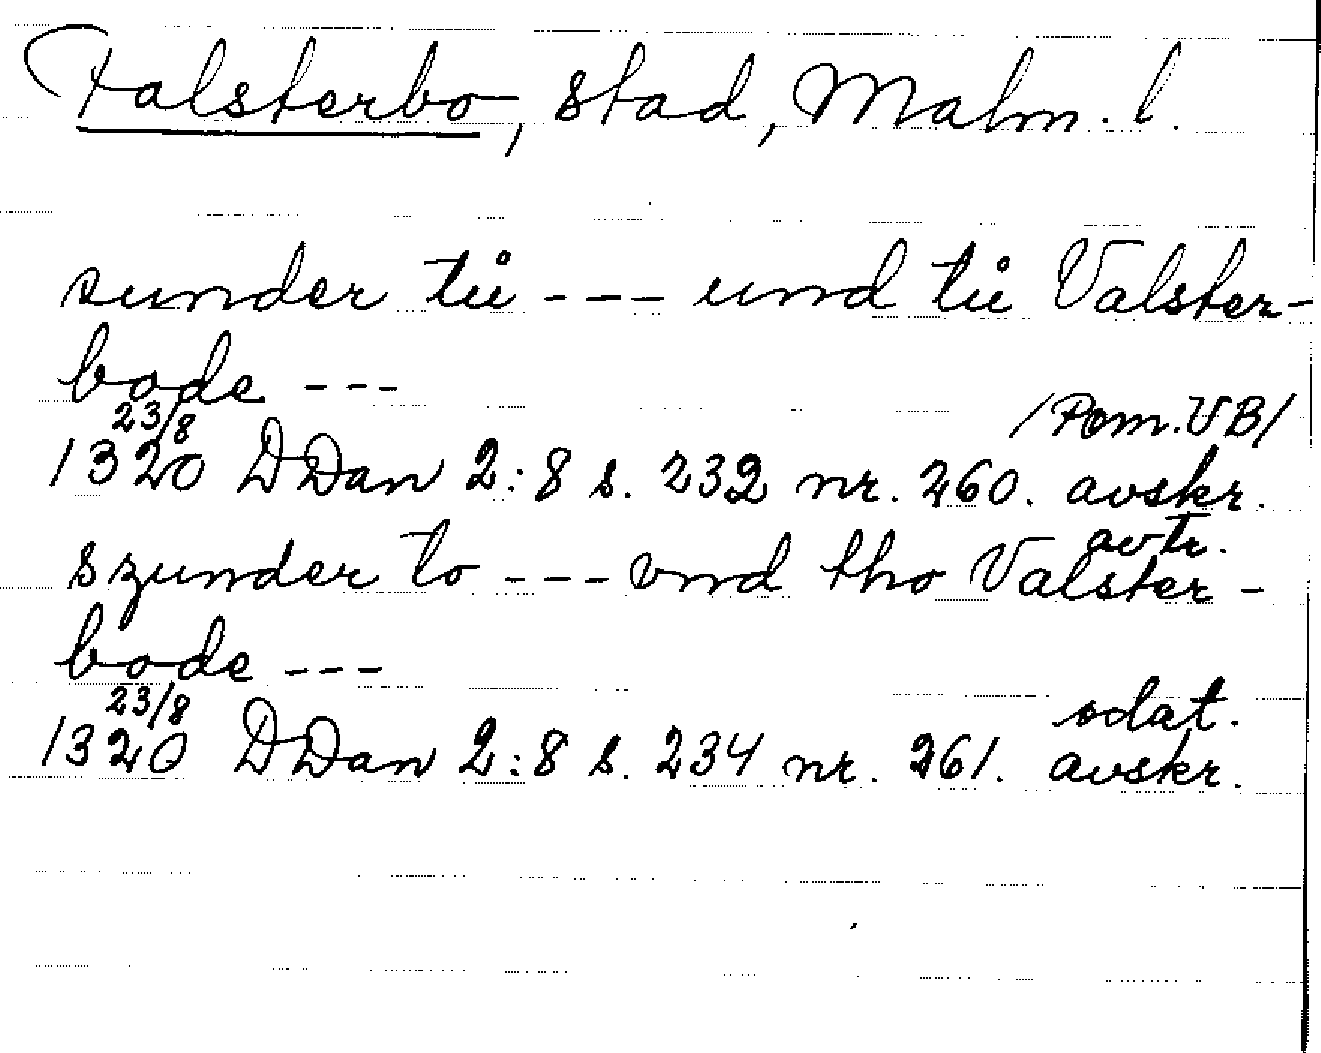 Falsterbo, stad, Malm. l.
sunder tů --- und tů Valster-
bode ---
23/8 /Pom. UB/
1320 DDan 2:8 s. 232 nr. 260. avskr.
avtr.
szunder to --- vnd tho Valster-
bode ---
23/8 odat.
1320 DDan 2:8 s. 234 nr. 261. avskr.